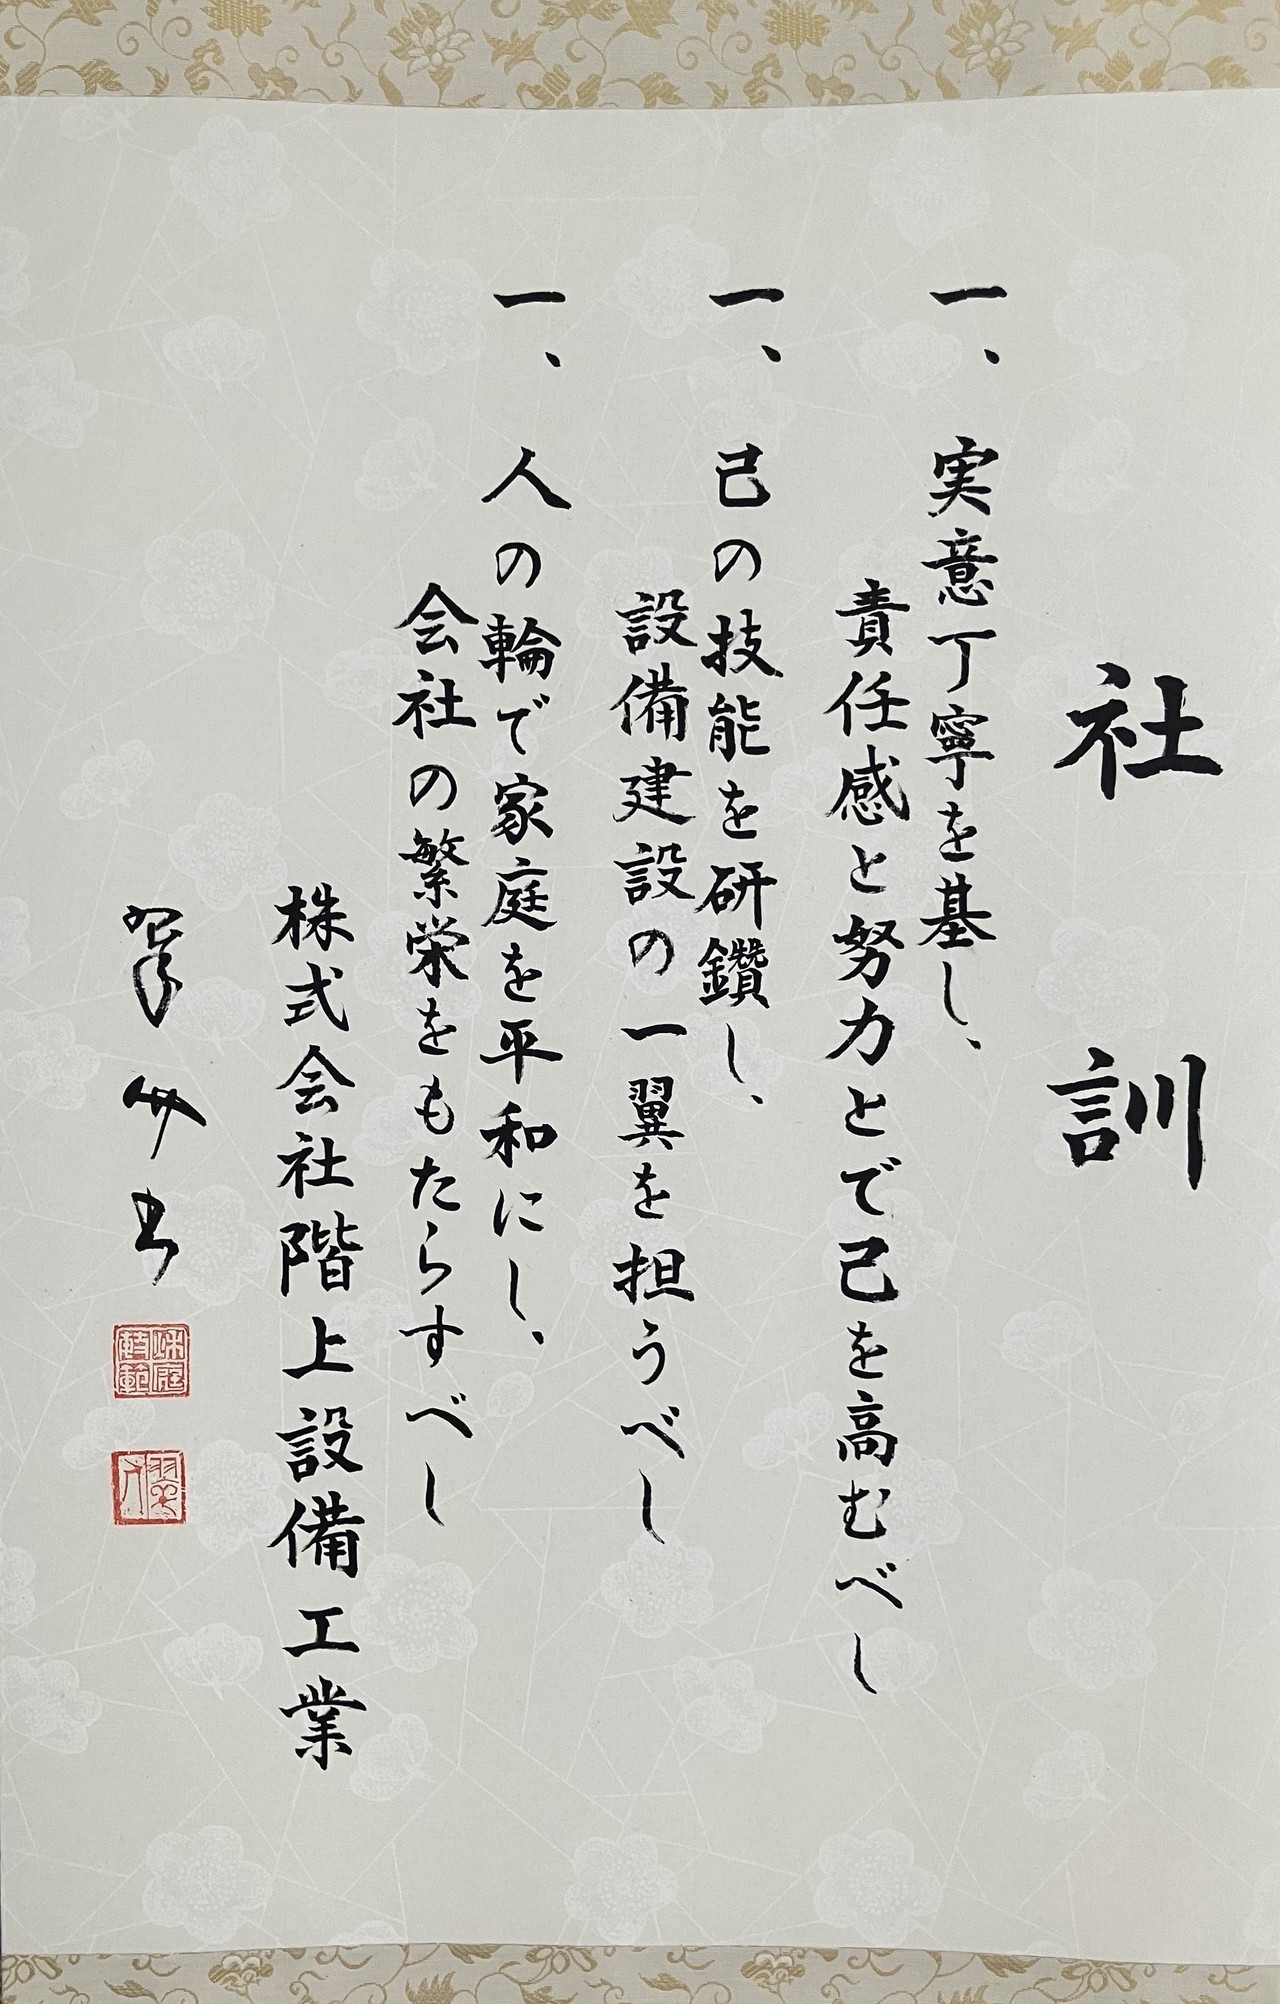 社訓
一、実意丁寧を基し、
責任感と努力とで己を高むべし
一、己の技能を研鑽し、
設備建設の一翼を担うべし
一、人の輪で家庭を平和にし、
会社の繁栄をもたらすべし
株式会社階上設備工業